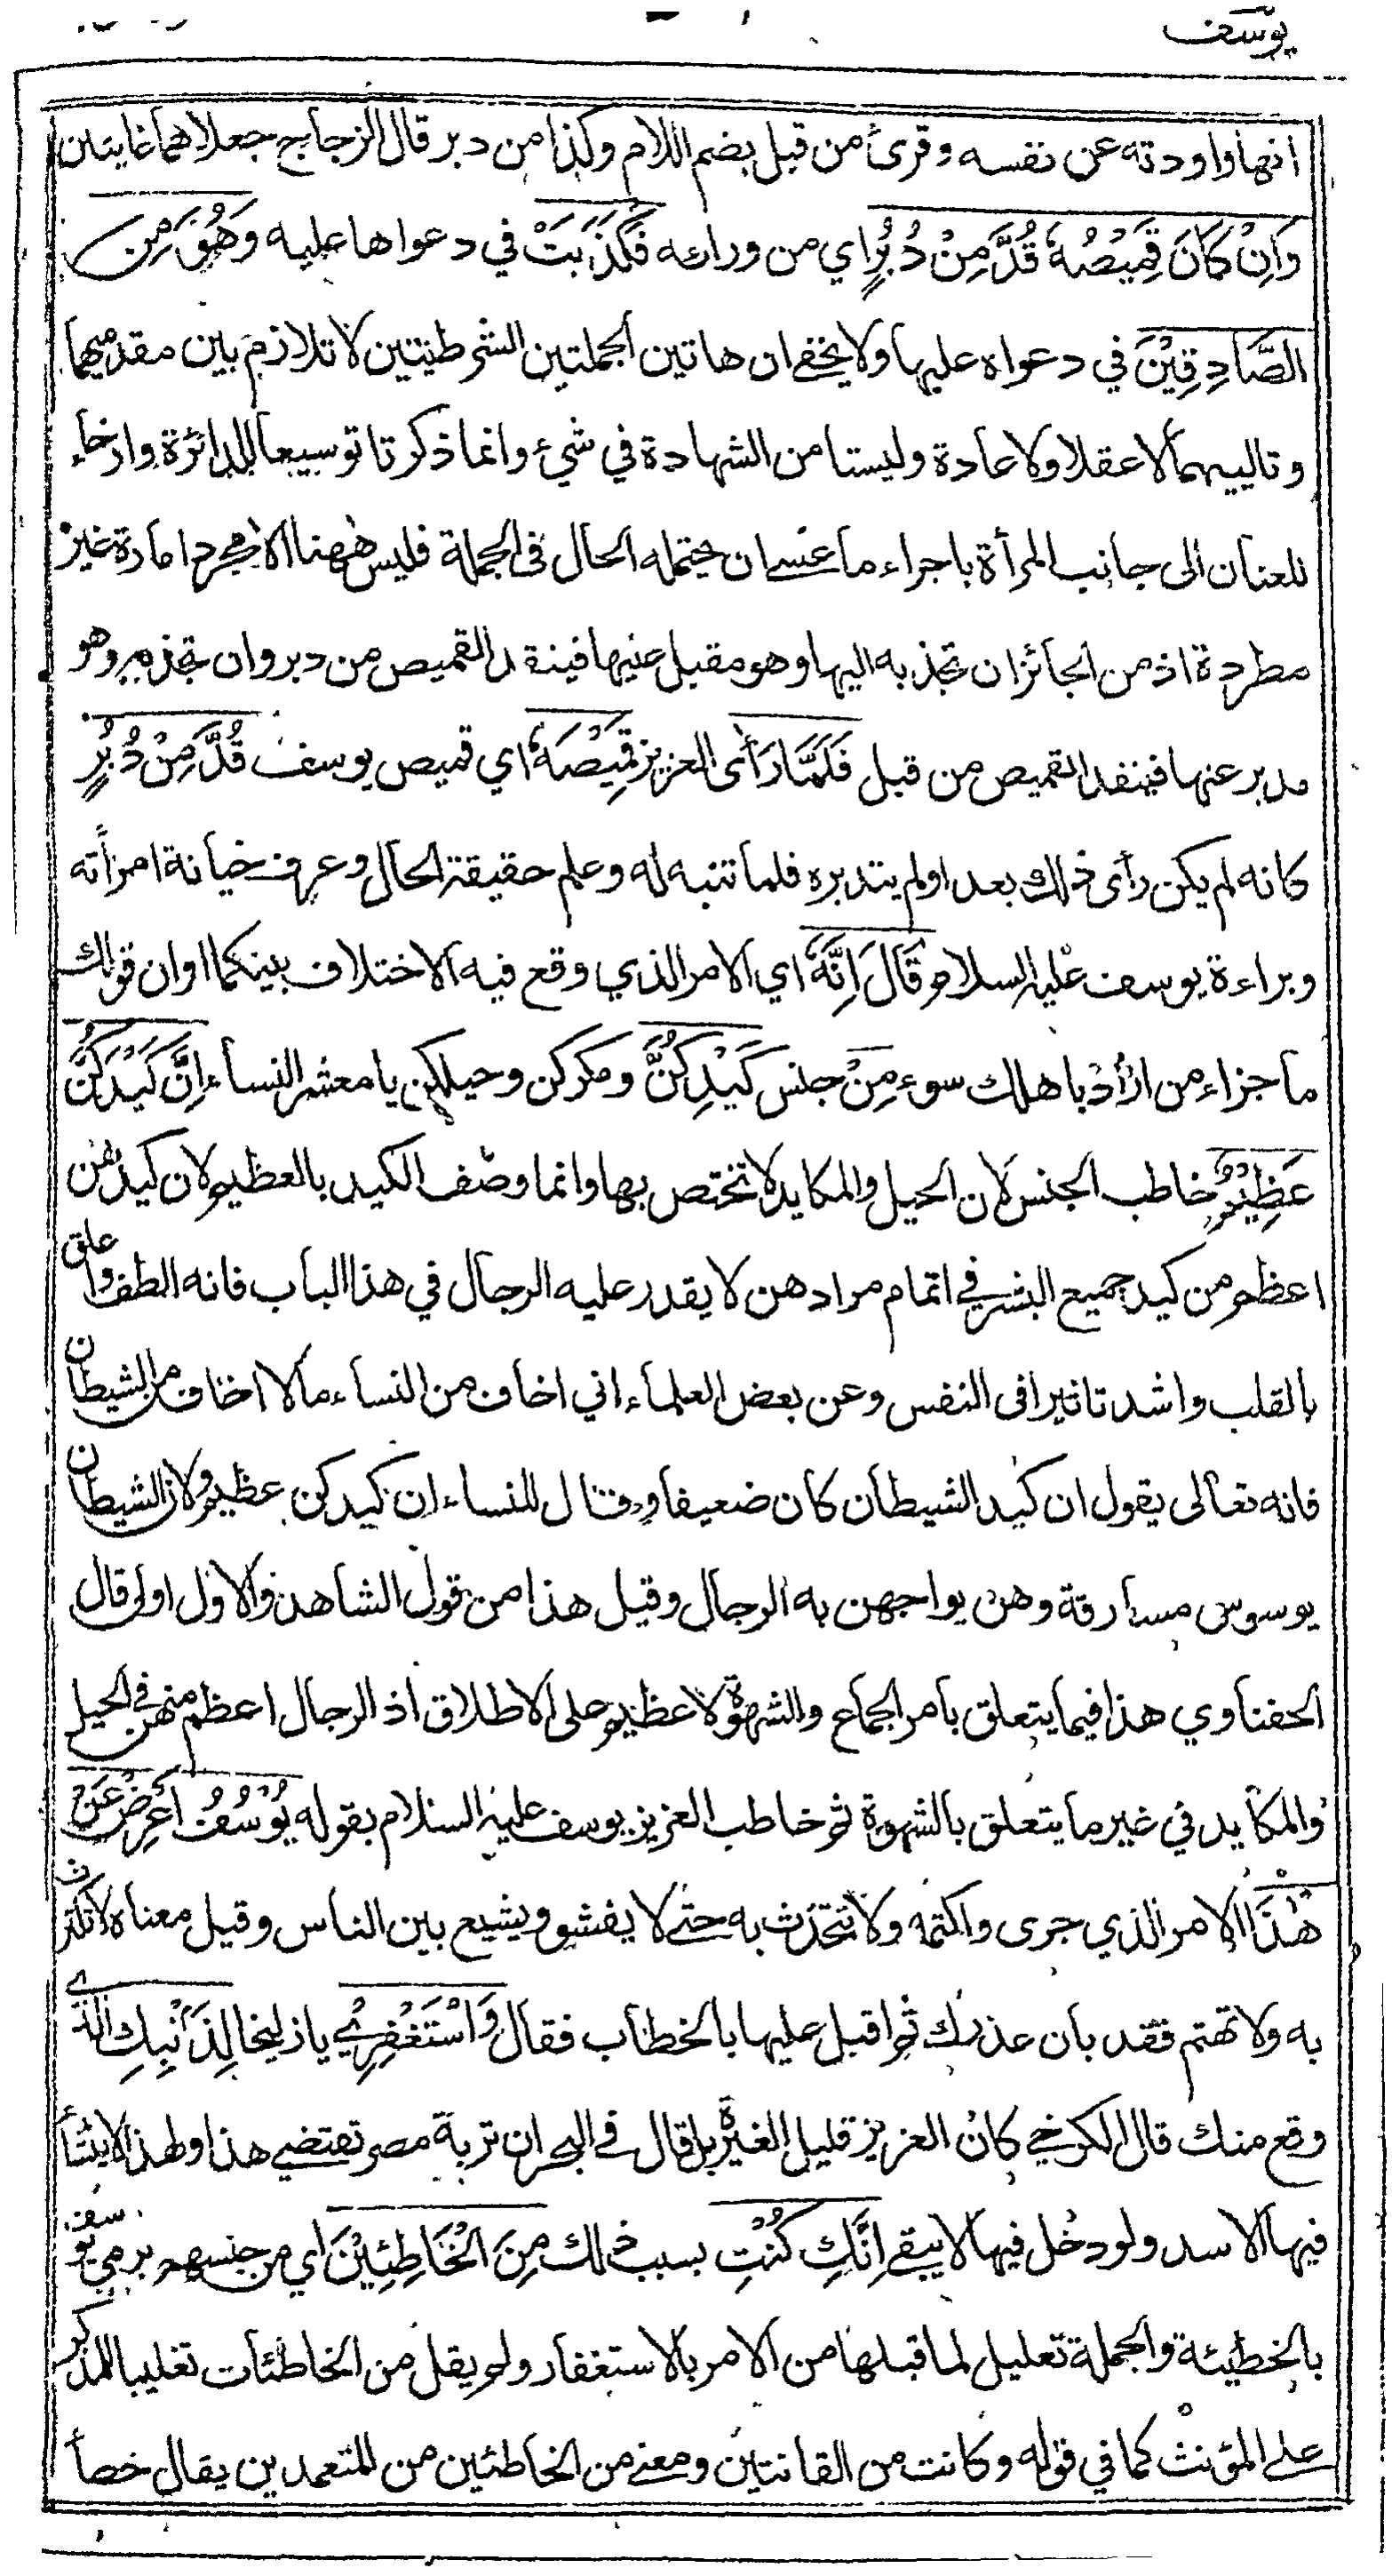 يوسف
انها راودته عن نفسه وقرئ من قبل بضم اللام وكذا من دبر قال الزجاج جعلاهما غايتين
وَاِنْ كَانَ قَمِيْصُهٗ قُدَّ مِنْ دُبُرٍ اي من ورائه فَكَذَبَتْ في دعواها عليه وَهُوَ مِنَ
الصَّادِقِيْنَ في دعواه عليها ولا يخفى ان هاتين الجملتين الشرطيتين لا تلازم بين مقدميهما
وتالييهما لا عقلا ولا عادة وليستا من الشهادة في شيء وانما ذكرتا توسيعا للدائرة وارخاء
للعنان الى جانب المرأة باجراء ما عسى ان يحتمله الحال في الجملة فليس ههنا الا مجرد امارة غير
مطردة اذ من الجائز ان تجذبه اليها وهو مقبل عليها فينقد القميص من دبر وان تجذبه وهو
مدبر عنها فينقد القميص من قبل فَلَمَّا رَأَى العزيز قَمِيْصَهٗ اي قميص يوسف قُدَّ مِنْ دُبُرٍ
كانه لم يكن رأى ذلك بعد او لم يتدبره فلما تنبه له وعلم حقيقة الحال وعرف خيانة امرأته
وبراءة يوسف عليه السلام قَالَ اِنَّهٗ اي الامر الذي وقع فيه الاختلاف بينكما او ان قولك
ما جزاء من اراد باهلك سوء مِنْ جنس كَيْدِكُنَّ ومكركن وحيلكن يا معشر النساء اِنَّ كَيْدَكُنَّ
عَظِيْمٌ خاطب الجنس لان الحيل والمكايد لا تختص بها وانما وصف الكيد بالعظيم لان كيدهن
اعظم من كيد جميع البشر في اتمام مرادهن لا يقدر عليه الرجال في هذا الباب فانه الطف واعلق
بالقلب واشد تاثيرا في النفس وعن بعض العلماء اني اخاف من النساء ما لا اخاف من الشيطان
فانه تعالى يقول ان كيد الشيطان كان ضعيفا وقال للنساء ان كيدكن عظيم ولان الشيطان
يوسوس مسارقة وهن يواجهن به الرجال وقيل هذا من قول الشاهد والاول اولى قال
الحفناوي هذا فيما يتعلق بامر الجماع والشهوة لا عظيم على الاطلاق اذ الرجال اعظم منهن في الحيل
والمكايد في غير ما يتعلق بالشهوة ثم خاطب العزيز يوسف عليه السلام بقوله يُوْسُفُ اَعْرِضْ عَنْ
هٰذَا الامر الذي جرى واكتمه ولا تتحدث به حتى لا يفشو ويشيع بين الناس وقيل معناه لا تكترث
به ولا تهتم فقد بان عذرك ثم اقبل عليها بالخطاب فقال وَاسْتَغْفِرِيْ يا زليخا لِذَنْبِكِ الذي
وقع منك قال الكرخي كان العزيز قليل الغيرة بل قال في البحر ان تربة مصر تقتضي هذا ولهذا لا ينشأ
فيها الاسد ولو دخل فيها لا يبقى اِنَّكِ كُنْتِ بسبب ذلك مِنَ الْخَاطِئِيْنَ اي من جنسهم برمي يوسف
بالخطيئة والجملة تعليل لما قبلها من الامر بالاستغفار ولم يقل من الخاطئات تغليبا للمذكر
على المؤنث كما في قوله وكانت من القانتين ومعنى من الخاطئين من المتعمدين يقال خطأ